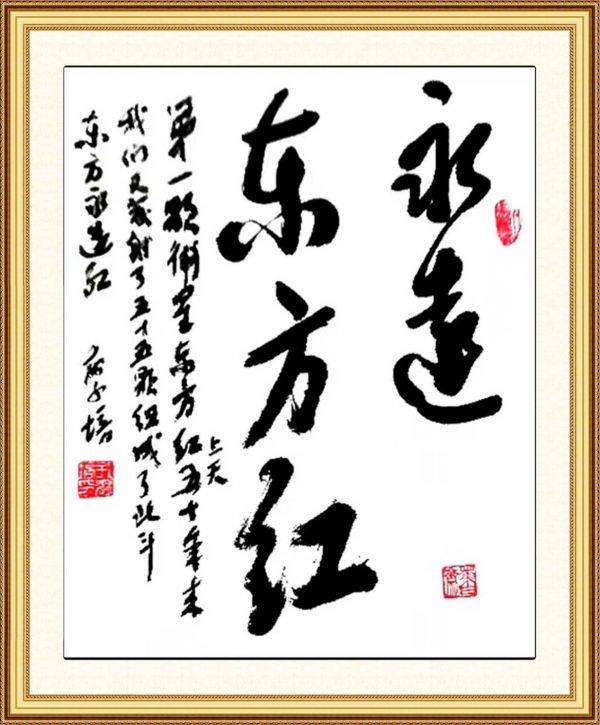 永远
东方红
第一颗衛星东方红上天五十年来
我们又發射了五十五颗组成了北斗
东方永远红